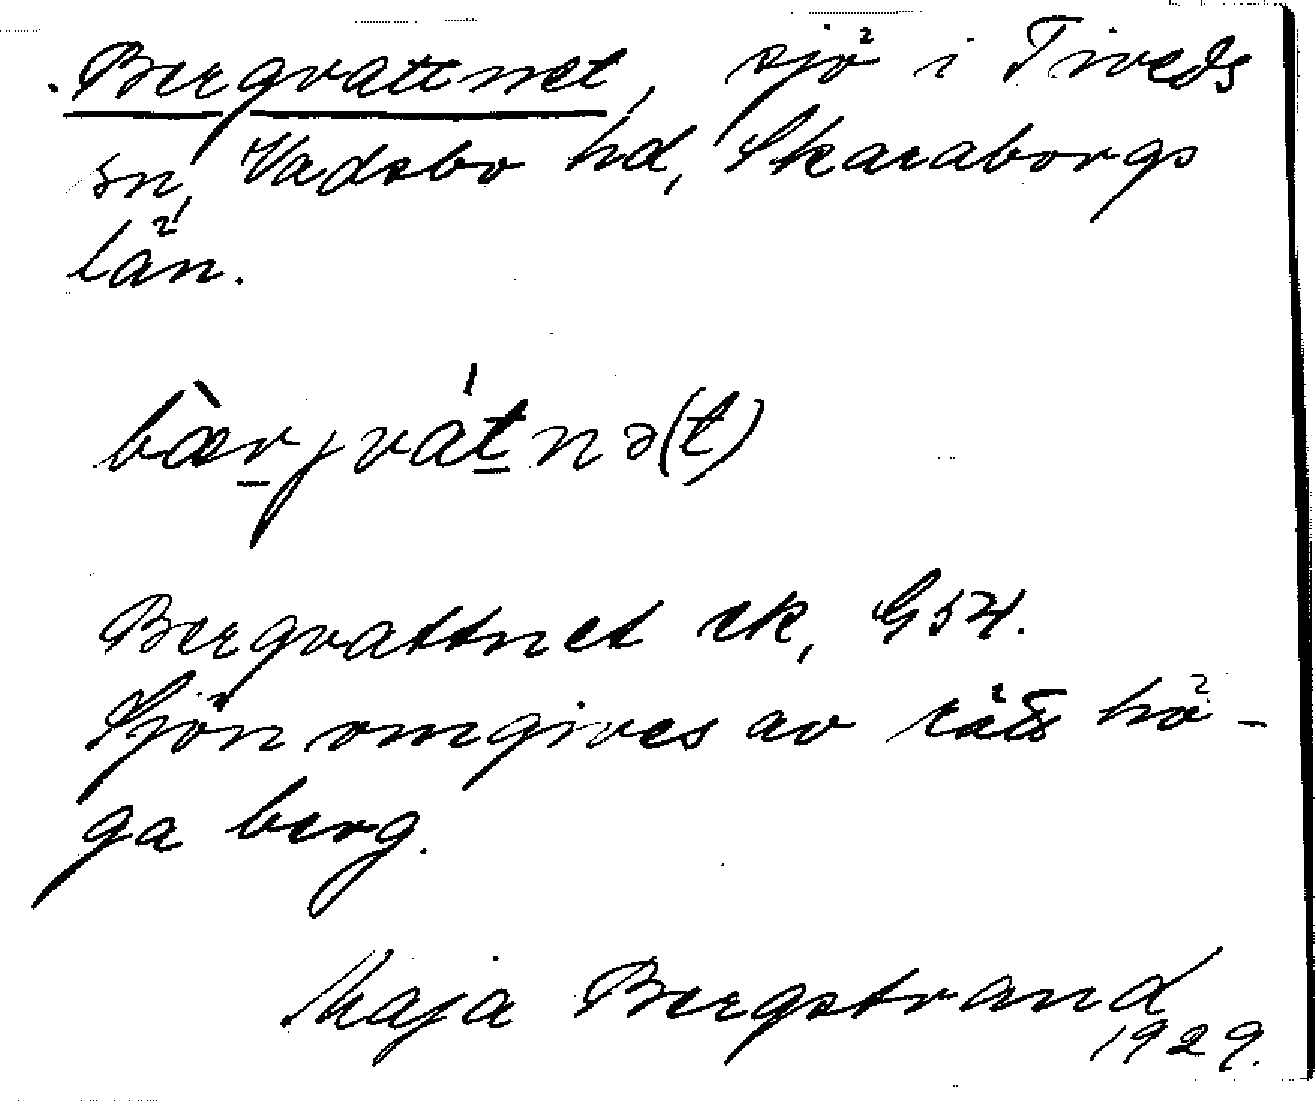 Bergvattnet, sjö i Tiveds
sn, Vadsbo hd, Skaraborgs
län.
bæ̀rjvátnə(t)
Bergvattnet ek, G54.
Sjön omgives av rätt hö-
ga berg.
Maja Bergstrand
1929.